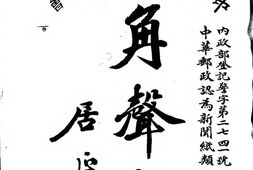 內政部登記警字第二七四一號
中華郵政認為新聞紙類
角聲
居